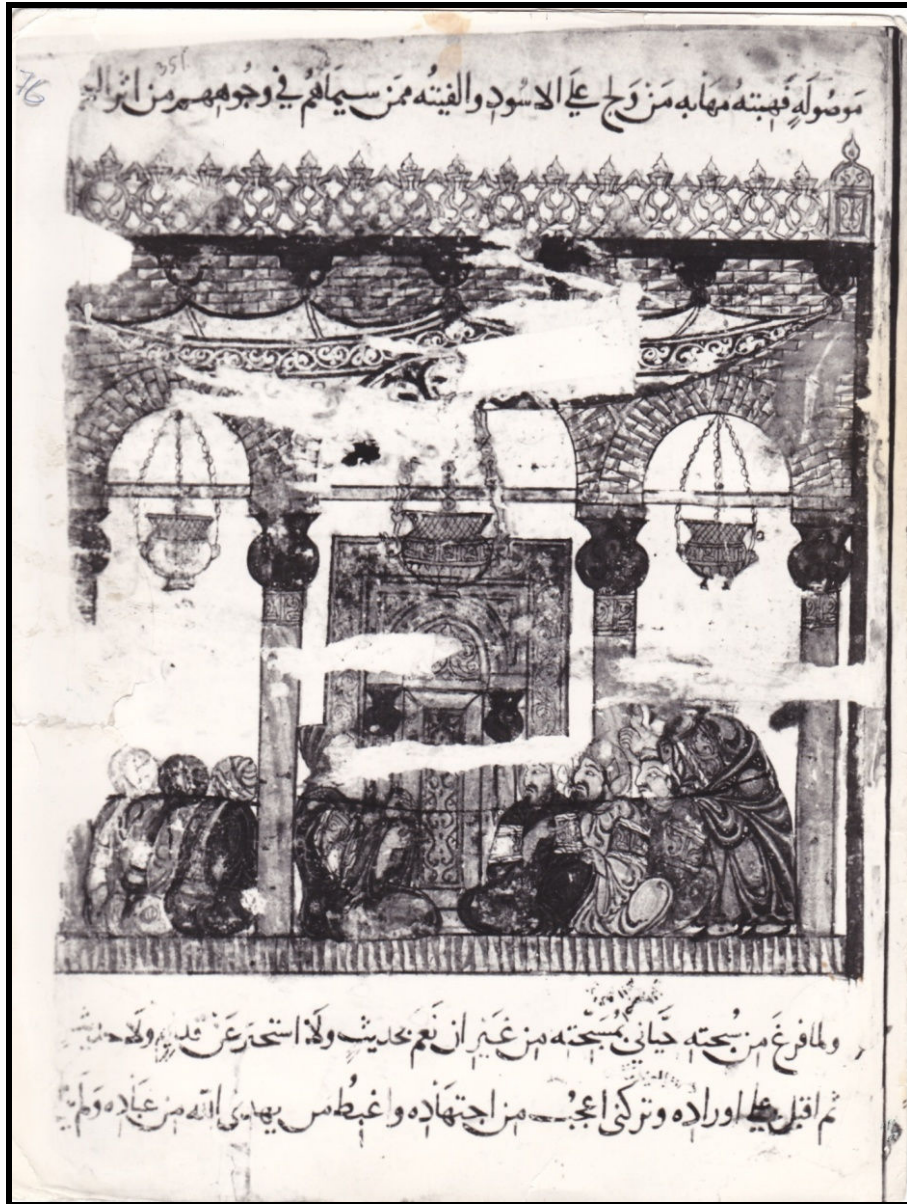 76
351
موصولة فهبته مهابه من ولج علي الاسود والفيته ممن سيماهم في وجوههم من اثر
ولما فرغ من سبحته حياني بمسبحته من غير ان نغم بحديث ولا استخبر عن قديم ولا حديث
ثم اقبل علي اوراده وتركني اعجب من اجتهاده واغبط من يهدي الله من عباده ولم